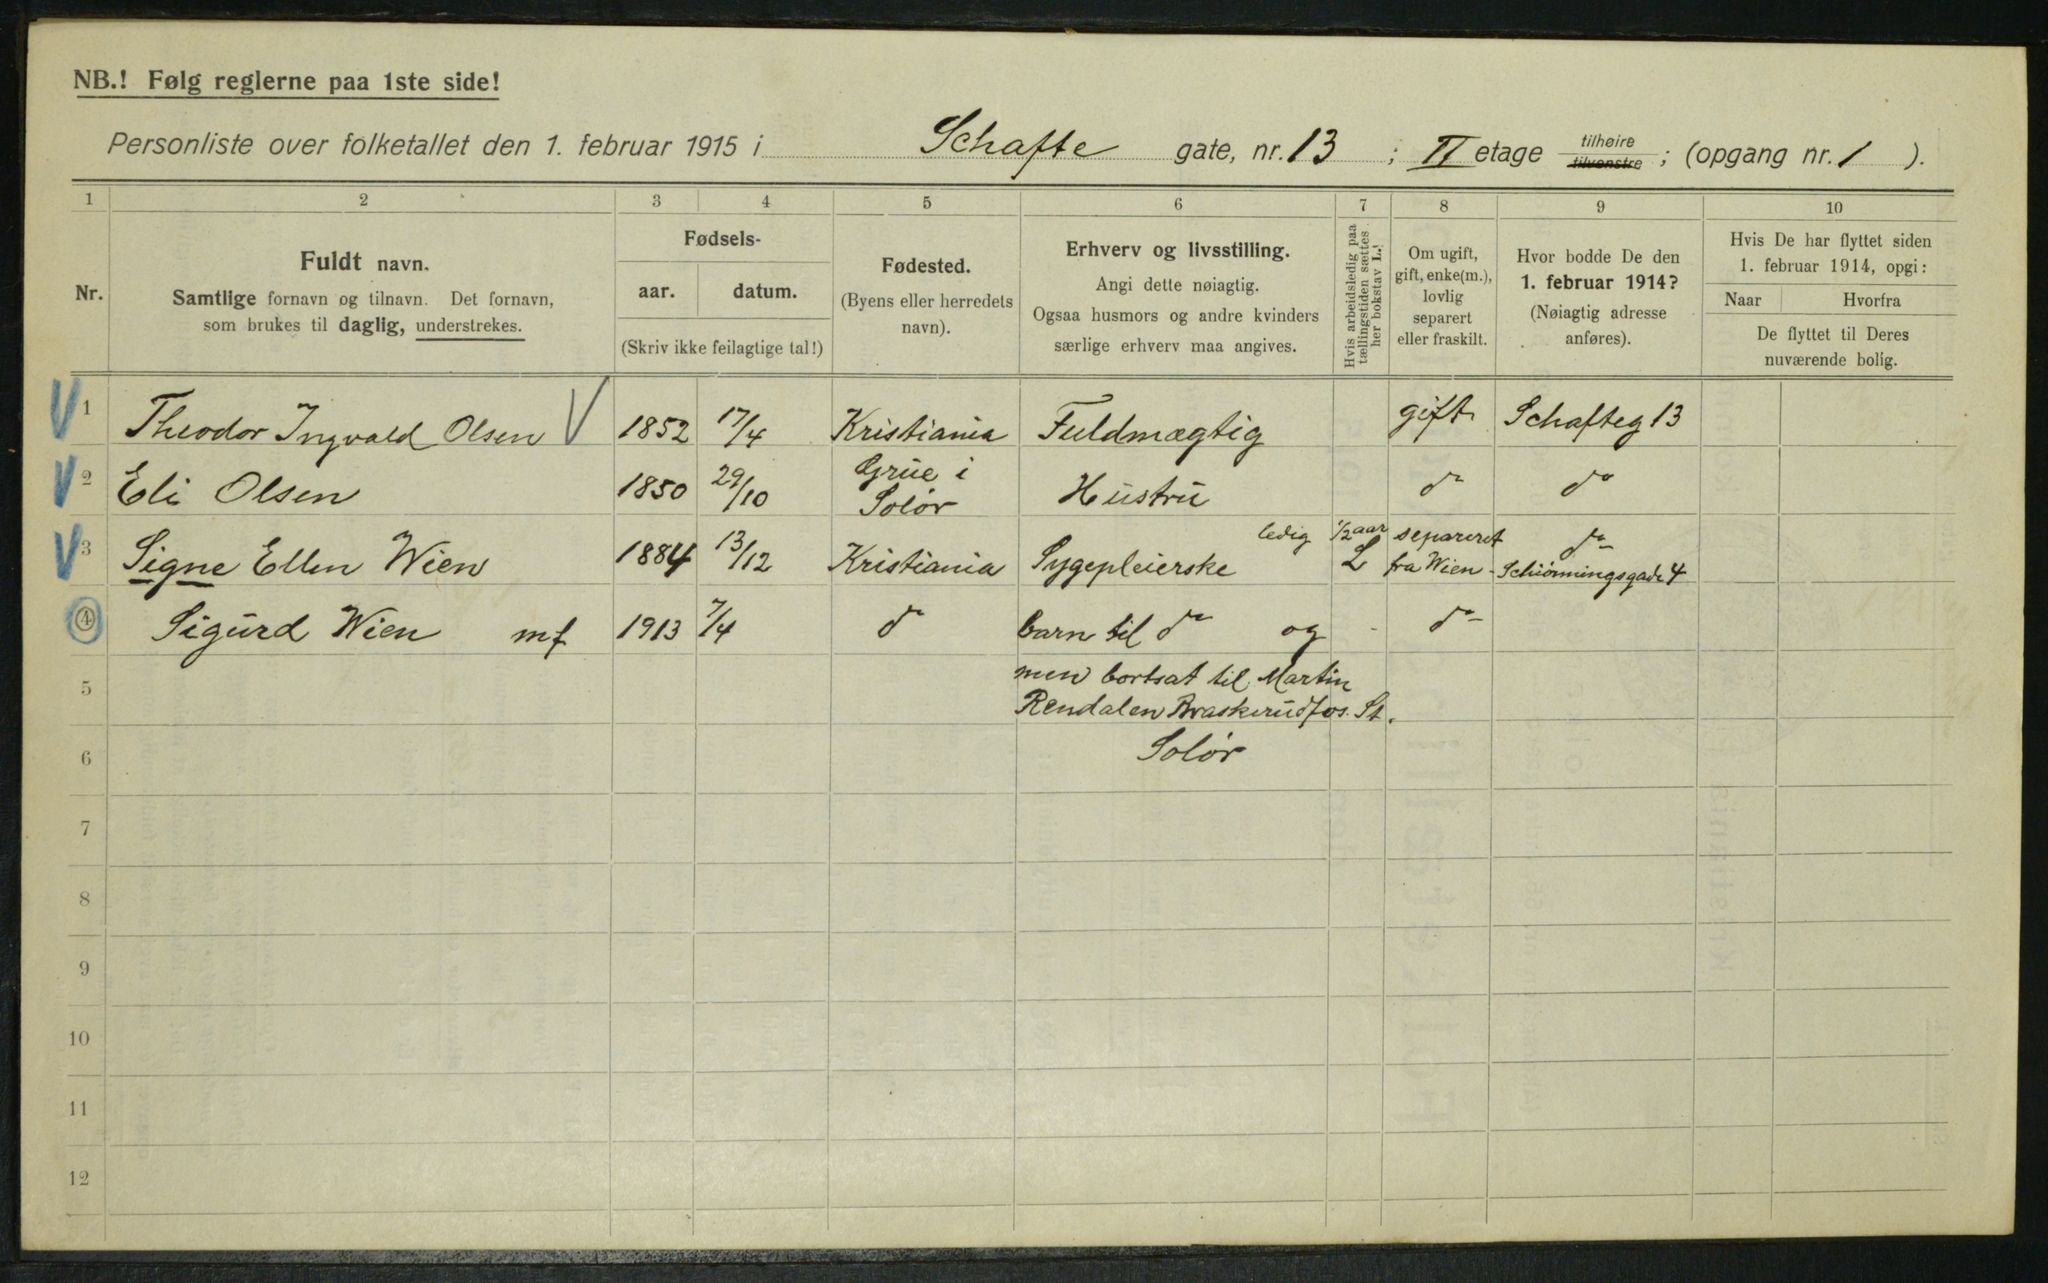 NB.! Følg reglerne paa 1ste side!
Personliste over folketallet den 1. februar 1915 i Schafte gate, nr. 13 ; II etage tilhøire tilvenstre ; (opgang nr. 1 ).
1 2 3 4 5 6 7 8 9 10
Nr.
Fuldt navn.
Samtlige fornavn og tilnavn. Det fornavn,
som brukes til daglig, understrekes.
Fødsels-
aar. datum.
(Skriv ikke feilagtige tal!)
Fødested.
(Byens eller herredets
navn).
Erhverv og livsstilling.
Angi dette nøiagtig.
Ogsaa husmors og andre kvinders
særlige erhverv maa angives.
Hvis arbeidsledig paa
tællingstiden sættes
her bokstav L.!
Om ugift,
gift, enke(m.),
lovlig
separert
eller fraskilt.
Hvor bodde De den
1. februar 1914?
(Nøiagtig adresse
anføres).
Hvis De har flyttet siden
1. februar 1914, opgi:
Naar Hvorfra
De flyttet til Deres
nuværende bolig.
1 Theodor Ingvald Olsen 1852 17/4 Kristiania Fuldmægtig gift Schafteg 13
2 Eli Olsen 1850 29/10 Grue i Solør Hustru do do
3 Signe Ellen Wien 1884 13/12 Kristiania Sygepleierske ledig 1/2 aar L separeret fra Wien do Schiønningsgade 4
4 Sigurd Wien mf 1913 7/4 do barn til do og - do
5 men bortsat til Martin
Rendalen Braskerudfos. St.
6 Solør
7
8
9
10
11
12